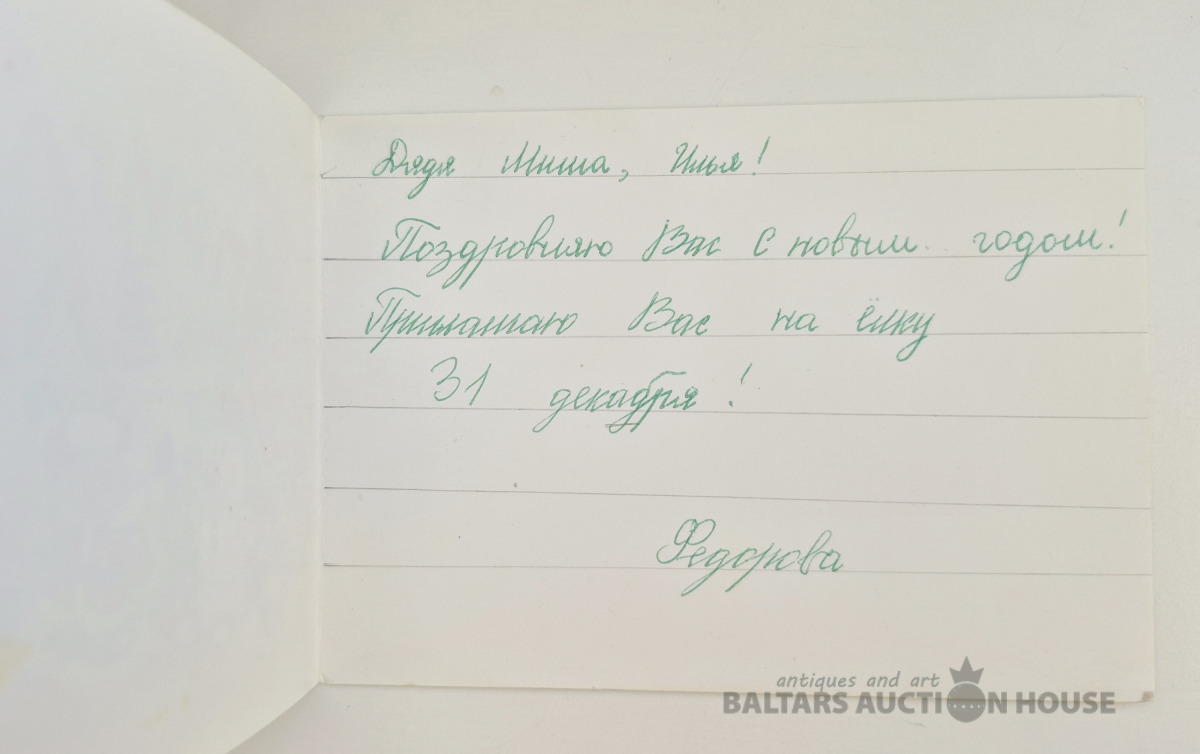 Дядя Миша, Илья!
Поздровляю Вас с новым годом!
Приглашаю Вас на ёлку
31 декабря!
Федорова
antiques and art
BALTARS AUCTION HOUSE